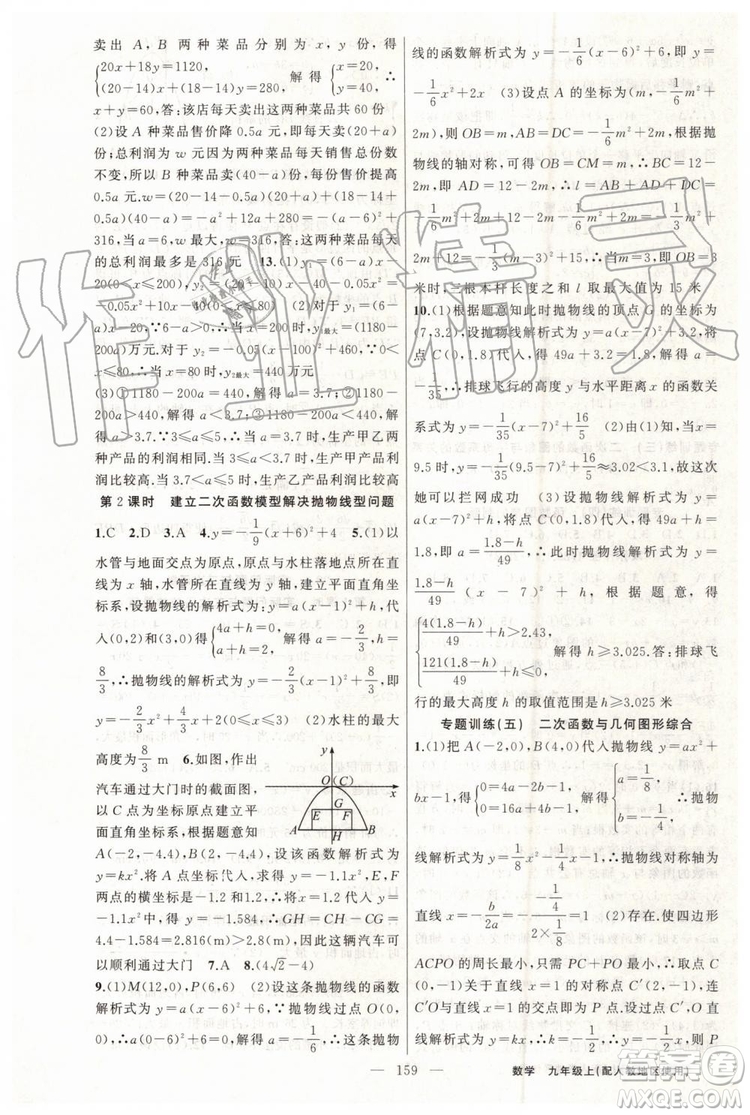 卖出 A，B 两种菜品分别为 x，y 份，得
{20x+18y=1120, (20−14)x+(18−14)y=280, 解得 {x=20, y=40, ∴
x+y=60，答：该店每天卖出这两种菜品共 60 份
(2)设 A 种菜品售价降 0.5a 元，即每天卖(20+a)
份；总利润为 w 元因为两种菜品每天销售总份数
不变，所以 B 种菜品卖(40−a)份，每份售价提高
0.5a 元．w=(20−14−0.5a)(20+a)+(18−14+
0.5a)(40−a)=−a²+12a+280=−(a−6)²+
316，当 a=6，w 最大，w=316，答：这两种菜品每天
的总利润最多是 316 元 13.(1)y₁=(6−a)x−20
(0<x≤200)，y₂=10x−40−0.05x²=
−0.05x²+10x−40(0<x≤80) (2)对于 y₁=
(6−a)x−20，∵6−a>0，∴x=200 时，y₁最大=(1180−
200a)万元．对于 y₂=−0.05(x−100)²+460，∵0<
x≤80，∴x=80 时，y₂最大=440 万元
(3)①1180−200a=440，解得 a=3.7；②1180−
200a>440，解得 a<3.7；③1180−200a<440，解得
a>3.7．∵3≤a≤5，∴当 a=3.7 时，生产甲乙两种
产品的利润相同．当 3≤a<3.7 时，生产甲产品利
润比较高．当 3.7<a≤5 时，生产乙产品利润比较高
第 2 课时 建立二次函数模型解决抛物线型问题
1.C 2.D 3.A 4.y=−1/9(x+6)²+4 5.(1)以
水管与地面交点为原点，原点与水柱落地点所在直
线为 x 轴，水管所在直线为 y 轴，建立平面直角坐
标系，设抛物线的解析式为：y=a(x−1)²+h，代
入(0,2)和(3,0)得{4a+h=0, a+h=2, 解得{a=−2/3, h=
8/3, ∴抛物线的解析式为 y=−2/3(x−1)²+8/3，即
y=−2/3x²+4/3x+2(0≤x≤3) (2)水柱的最大
高度为 8/3 m 6.如图，作出
汽车通过大门时的截面图，
以 C 点为坐标原点建立平
面直角坐标系，根据题意知
y
O (C)
x
G
E F
A H B
A(−2,−4.4)，B(2,−4.4)，设该函数解析式为
y=kx²．将 B 点的坐标代入，得 y=−1.1x²，E，F
两点的横坐标是−1.2 和 1.2，将 x=1.2 代入 y=
−1.1x² 中，得 y≈−1.584，∴GH=CH−CG=
4.4−1.584=2.816(m)>2.8 m，因此这辆汽车可
以顺利通过大门 7.A 8.(4√2−4)
9.(1)M(12,0)，P(6,6) (2)设这条抛物线的函数
解析式为 y=a(x−6)²+6，∵抛物线过点 O(0,
0)，∴a(0−6)²+6=0，解得 a=−1/6，∴这条抛物
线的函数解析式为 y=−1/6(x−6)²+6，即 y=
−1/6x²+2x (3)设点 A 的坐标为(m,−1/6m²+
2m)，则 OB=m，AB=DC=−1/6m²+2m，根据抛
物线的轴对称，可得 OB=CM=m，∴BC=12−
2m，即 AD=12−2m，∴l=AB+AD+DC=
−1/6m²+2m+12−2m−1/6m²+2m=−1/3m²+
2m+12=−1/3(m−3)²+15，∴当 m=3，即 OB=3
米时，三根木杆长度之和 l 取最大值为 15 米
10.(1)根据题意知此时抛物线的顶点 G 的坐标为
(7,3.2)，设抛物线解析式为 y=a(x−7)²+3.2，将
点 C(0,1.8)代入，得：49a+3.2=1.8，解得：a=
−1/35，∴排球飞行的高度 y 与水平距离 x 的函数关
系式为 y=−1/35(x−7)²+16/5 (2)由(1)知，当 x=
9.5 时，y=−1/35(9.5−7)²+16/5≈3.02<3.1，因此
她可以拦网成功 (3)设抛物线解析式为 y=
a(x−7)²+h，将点 C(0,1.8)代入，得：49a+h=
1.8，即 a=(1.8−h)/49，∴此时抛物线解析式为 y=
(1.8−h)/49 (x−7)²+h，根据题意，得：
{4(1.8−h)/49+h>2.43, 121(1.8−h)/49+h≤0, 解得：h≥3.025，答：排球飞
行的最大高度 h 的取值范围是 h≥3.025 米
专题训练(五) 二次函数与几何图形综合
1.(1)把 A(−2,0)，B(4,0)代入抛物线 y=ax²+
bx−1，得{0=4a−2b−1, 0=16a+4b−1, 解得{a=1/8, b=−1/4, ∴抛物
线解析式为 y=1/8x²−1/4x−1，∴抛物线对称轴为
直线 x=−b/2a=−(−1/4)/(2×1/8)=1 (2)存在，使四边形
ACPO 的周长最小，只需 PC+PO 最小，取点 C(0,
−1)关于直线 x=1 的对称点 C′(2,−1)，连接
C′O 与直线 x=1 的交点即为 P 点．设过点 C′，O 直
线解析式为 y=kx，∴k=−1/2，∴y=−1/2x，则 P 点
— 159 —
数学 九年级上(配人教地区使用)
作业精灵